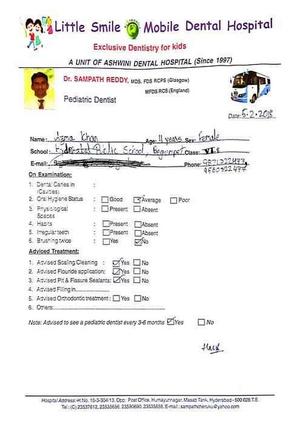 Little Smile Mobile Dental Hospital
Exclusive Dentistry for kids
A UNIT OF ASHWINI DENTAL HOSPITAL (Since 1997)
Dr. SAMPATH REDDY, MDS, FDS RCPS (Glasgow)
MFDS RCS (England)
Pediatric Dentist
Date: 5-2-2018
Name: Asma Khan Age 11 years Sex: Female
School: Hyderabad Public School, Begumpet Class: VI
E-mail: Phone:
On Examination:
1. Dental Caries in :
(Cavities)
2. Oral Hygiene Status : Good Average Poor
3. Physiological : Present Absent
Spaces
4. Habits : Present Absent
5. Irregular teeth : Present Absent
6. Brushing twice : Yes No
Advised Treatment:
1. Advised Scaling Cleaning : Yes No
2. Advised Flouride application: Yes No
3. Advised Pit & Fissure Sealants: Yes No
4. Advised Filling in
5. Advised Orthodontic treatment : Yes No
6. Others:
Note: Advised to see a pediatric dentist every 3-6 months Yes No
Hospital Address: H.No. Opp. Post Office, Humayunagar, Masab Tank, Hyderabad - 500 028 T.S.